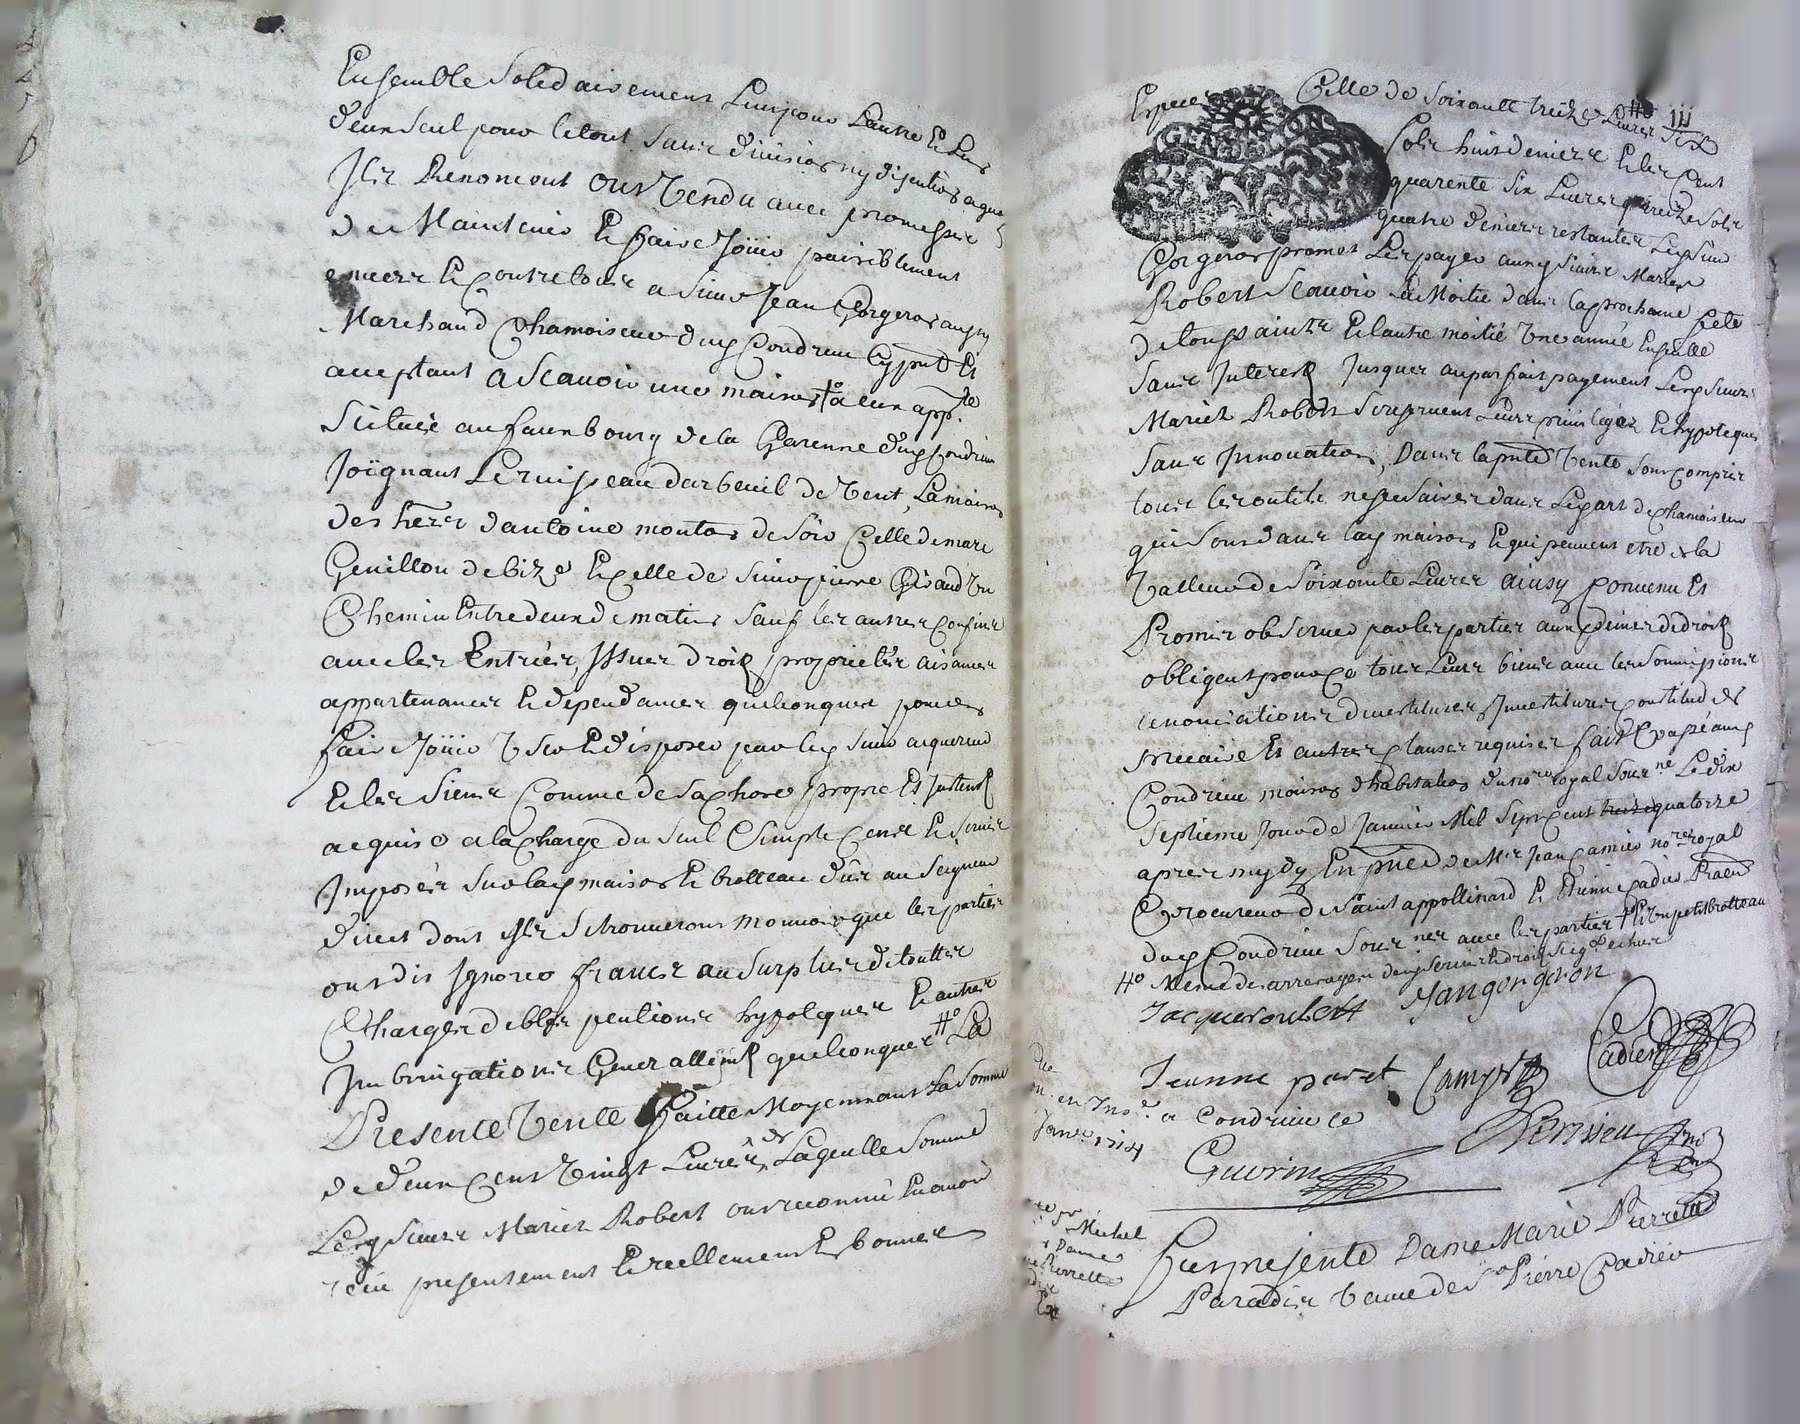 Ensemble solidairement L'un pour L'autre et L'un
d'eux seul pour le tout sans division ny discution a quoy
Ils Renoncent Ont Vendu avec promesse
de Maintenir et faire Joüir paisiblement
envers et contre tous a sieur Jean Gorgeron aussy
Marchand Chamoiseur dud Condrieu cy pnt et
acceptant a Scavoir une maison a eux app.te
Scituée au faurbourg de la Garenne dud Condrieu
Joïgnant Le ruisseau darbeuil de vent, La maison
des hers d'antoine monton de soir Celle de marc
Genillon de bize et Celle de sieur pierre Giraud Un
Chemin Entredeux de matin sauf les autres confins
avec les Entrées, Issues droits proprietés aisances
appartenances et dependances quelconques pour en
faire Joüir User et disposer par led sieur acquereur
et les siens Comme de sa chose propre et Justemt
acquise a la Charge du seul et simple Cens et servis
Imposés sur lad maison et brotteau dûs au seigneur
direct dont Ils se trouveront mouvoir que les parties
ont dit Ignorer francs au surplus de touttes
Charges debtes pentions hypoteques et autres
Imbringations Generallemt quelconques #o La
Presente Vente faitte Moyennant La somme
de deux Cent Vingt Livres Laquelle somme
Led sieurs Mariez Robert ont reconnu En avoir
reçu presentement et reellement En bonnes
Especes
GENER LYON
Celle de soixante treize Livres six
sols huit deniers et les Cent
quarente six Livres treize sols
quatre deniers restantes Led sieur
Gorgeron promet Les payer auxd sieurs Mariez
Robert Scavoir La Moitié dans la prochaine fete
de toussaints et lautre moitié Une année Ensuitte
sans Interest Jusques au parfait payement Lesd sieurs
Mariez Robert se reservent Leurs privileges et hypoteques
sans Innovation, Dans la pnte Vente sont compris
tous les outils nessesaires dans Le part de chamoiseur
qui sont dans lad maison et qui peuvent etre de la
Valleur de soixante Livres ainsy convenu et
Promis observer par les parties aux peines de droit
obligent pour Ce tous Leurs biens avec les soumissions
renonciations devestitures Investitures constitud de
precaire et autres clauses requises fait et passé aud
Condrieu maison d'habitation du no.re royal sous.né Le dix
septieme Jour de Janvier Mil sept cent quatorze
apres mydy En pñce de Mr Jean Camier no.re royal
et procureur de saint appollinard et Etienne Cadier Praen
dud Condrieu sous.nes avec les parties et un petit brotteau
#o Meme des arrerages dud servis et droits seig.aux echus
Jacque roubert Jangorgeron
Jeanne paret Camyer Cadier
en Ins.é a Condrieu ce
Janv. 1714
Guerin
Michel
Dame
Pierrette
Fut presente Dame Marie Pierrette
Paradis Veuve de S.r Pierre Cadier